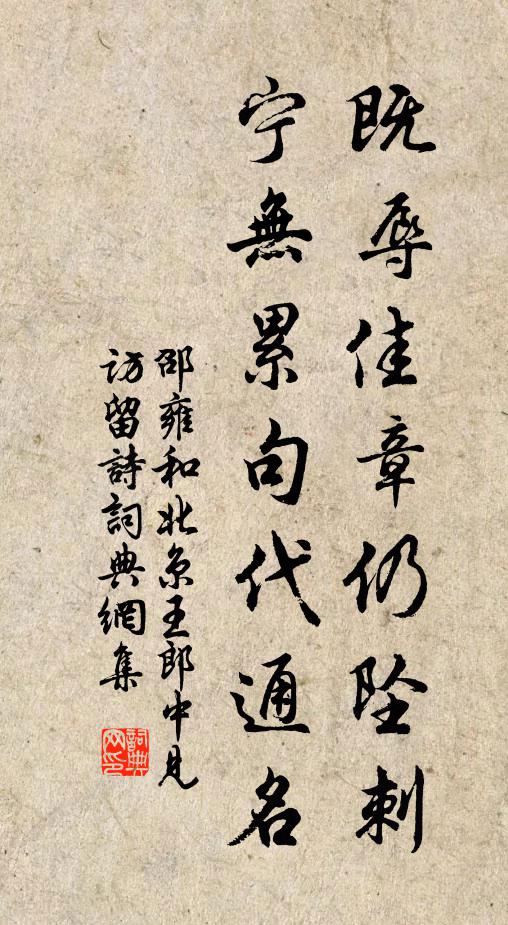 既辱佳章仍坠刺
宁無累句代通名
邵雍和北京王郎中見
訪留詩詞典網集
詞典網印